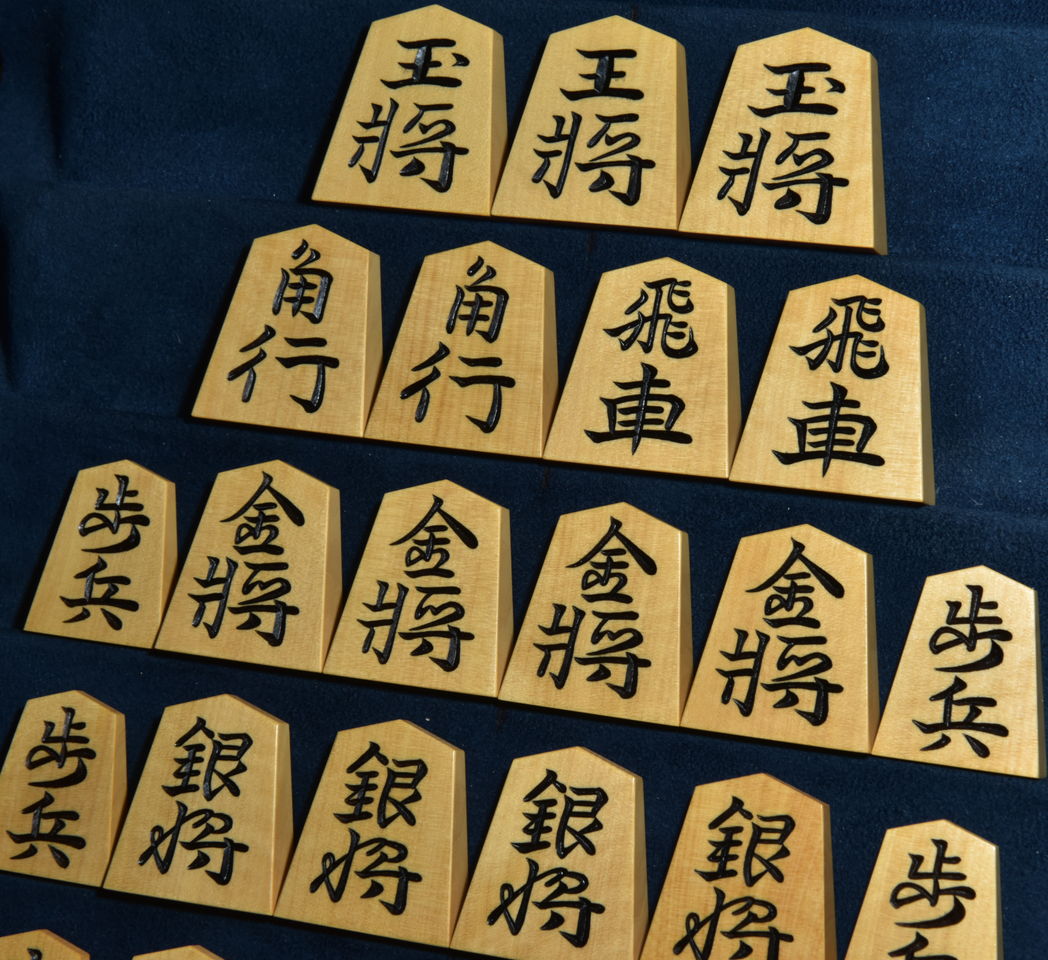 玉將
王將
玉將
角行
角行
飛車
飛車
歩兵
金將
金將
金將
金將
歩兵
歩兵
銀将
銀将
銀将
銀将
歩